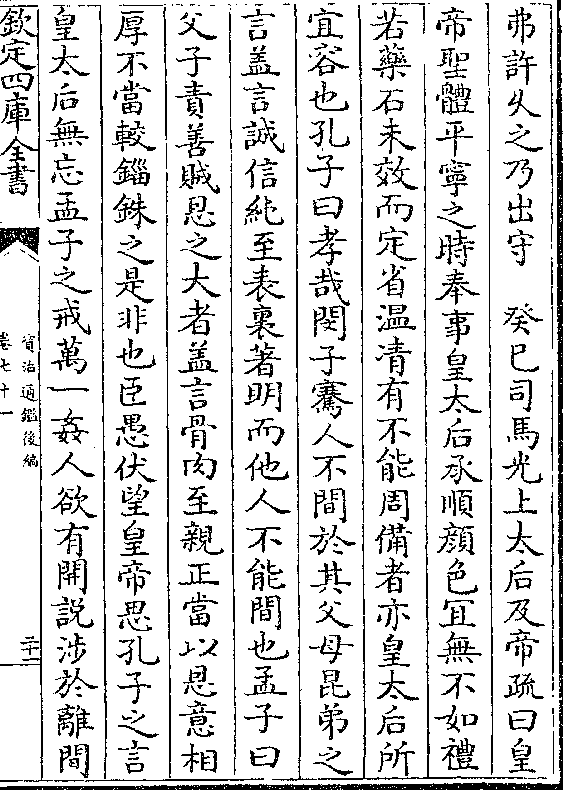 弗許乆之乃出守　癸巳司馬光上太后及帝疏曰皇
帝聖體平寧之時奉事皇太后承順顔色宜無不如禮
若藥石未效而定省温凊有不能周備者亦皇太后所
宜容也孔子曰孝哉閔子騫人不間於其父母昆弟之
言盖言誠信純至表裏著明而他人不能間也孟子曰
父子責善賊恩之大者盖言骨肉至親正當以恩意相
厚不當較錙銖之是非也臣愚伏望皇帝思孔子之言
皇太后無忘孟子之戒萬一姦人欲有開説涉於離間
欽定四庫全書
資治通鑑後編
卷七十一
二十二